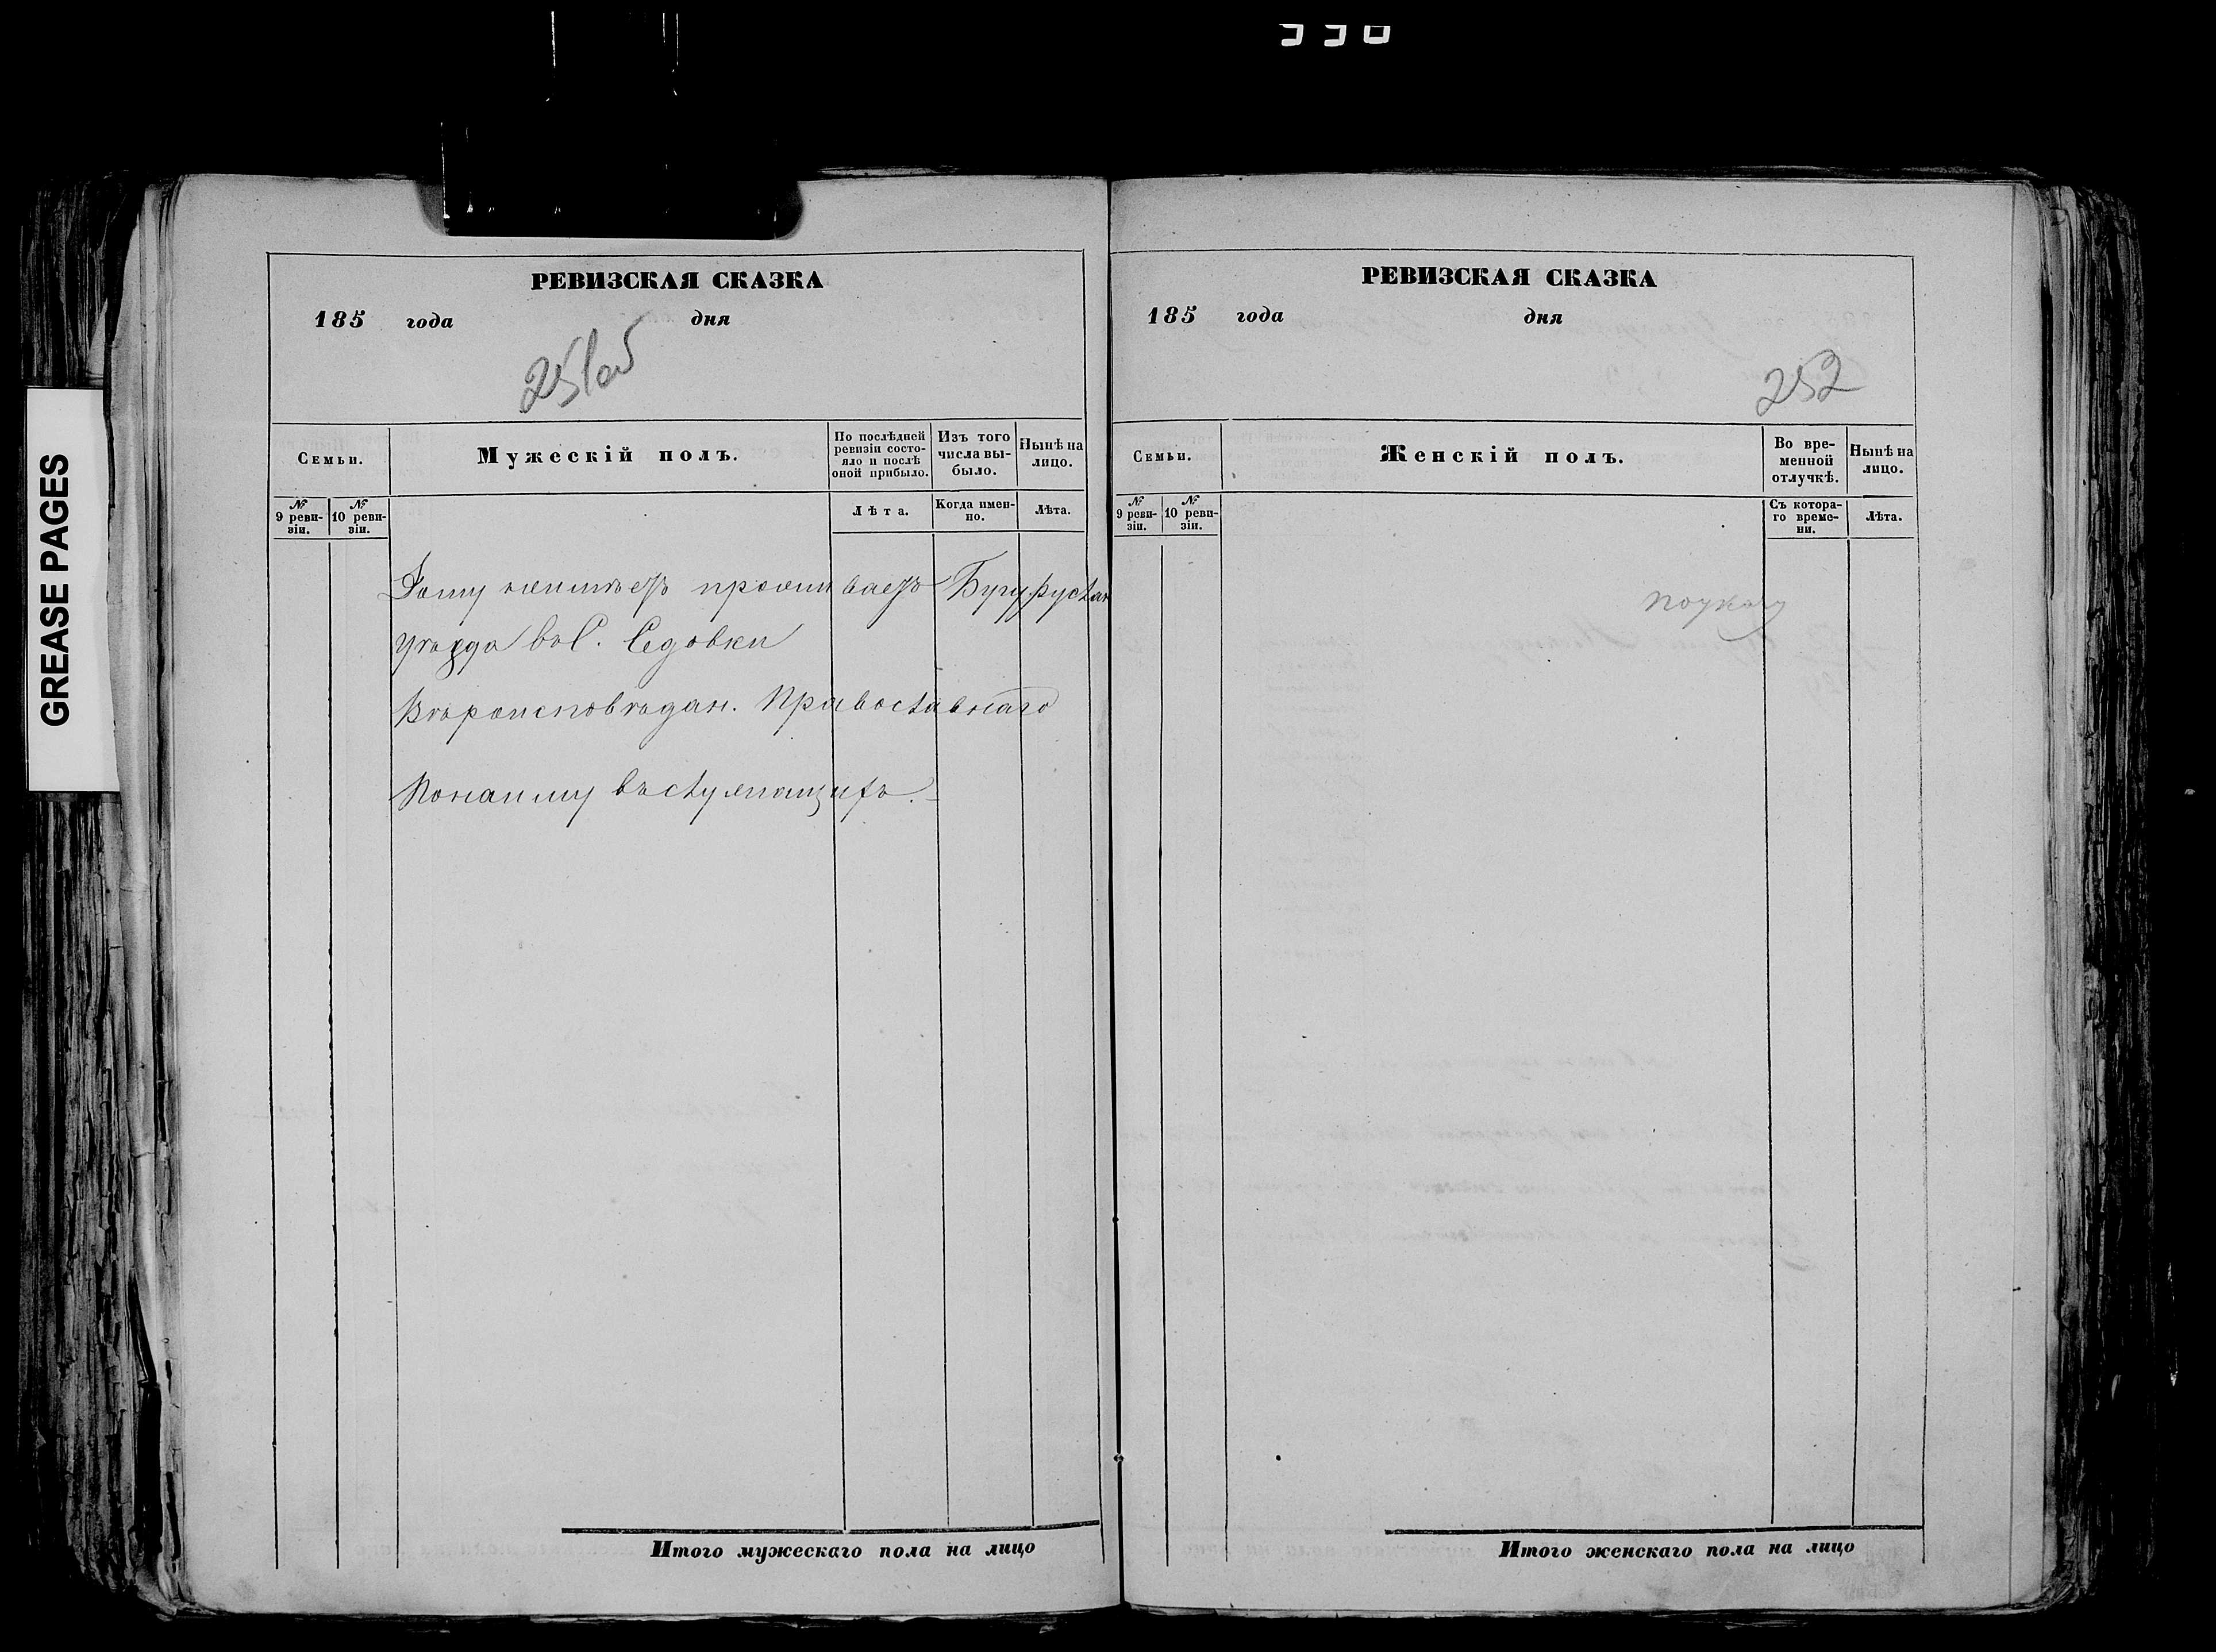 GREASE PAGES
РЕВИЗСКАЯ СКАЗКА
185 года дня
251об
Семьи.
Мужескій полъ.
По послѣдней ревизіи состо-
яло и послѣ
оной прибыло.
Изъ того
числа вы-
было.
Нынѣ на
лицо.
№
9 реви-
зіи.
№
10 реви-
зіи.
Лѣта.
Когда имен-
но.
Лѣта.
проживаетъ Бугурусла
уѣзда въ С. Седовки
Вѣроисповѣдан. Православнаго
Понайму въступающихъ.
Итого мужескаго пола на лицо
РЕВИЗСКАЯ СКАЗКА
185 года дня
252
Семьи.
Женскій полъ.
Во вре-
менной
отлучкѣ.
Нынѣ на
лицо.
№
9 реви-
зіи.
№
10 реви-
зіи.
Съ котора-
го време-
ни.
Лѣта.
Итого женскаго пола на лицо